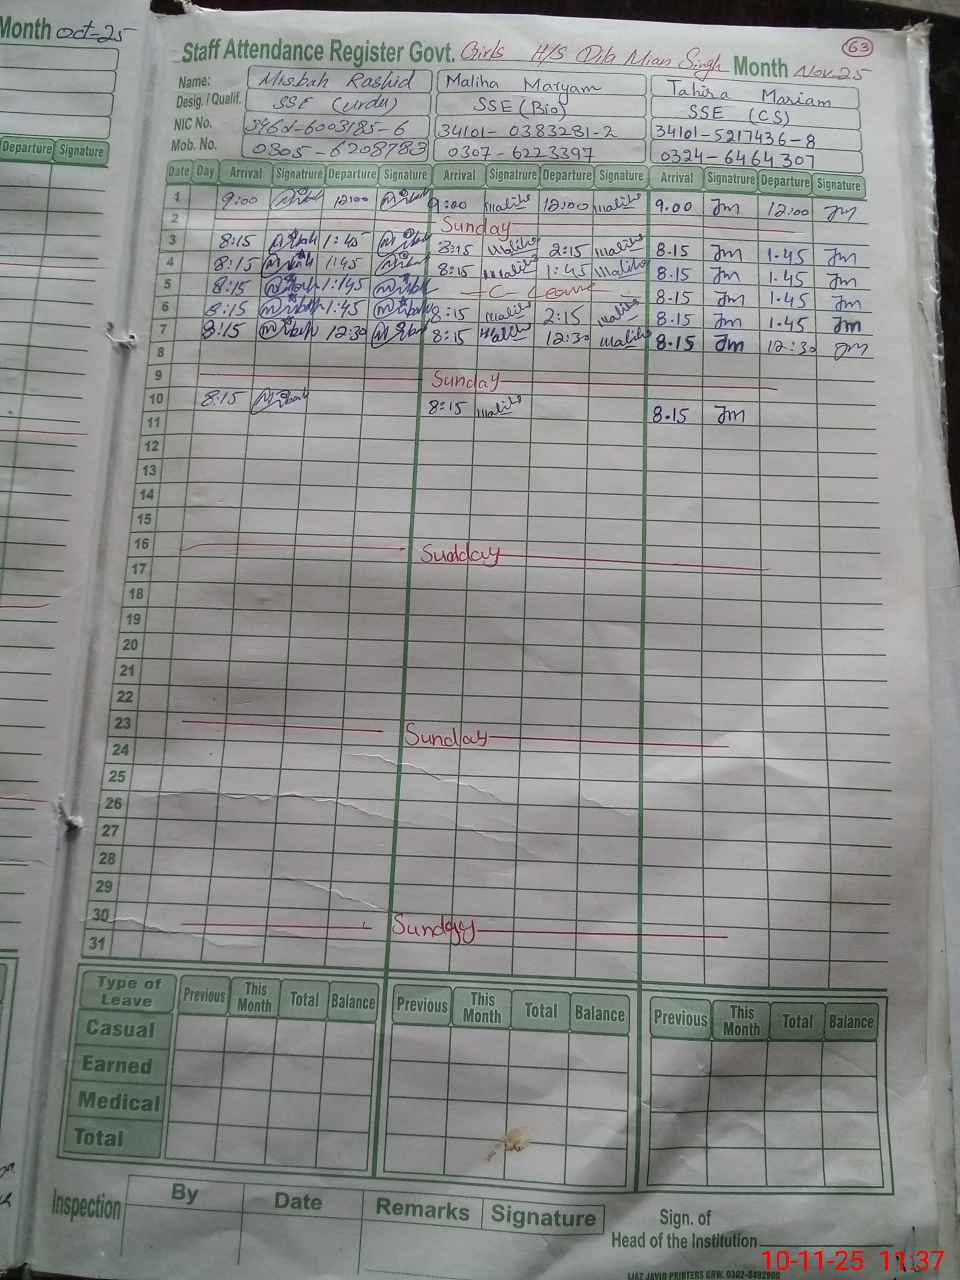 Month Oct-25
Departure Signature
63
Staff Attendance Register Govt. Girls H/S Qila Mian Singh Month Nov.25
Name: Misbah Rashid Maliha Maryam Tahira Mariam
Desig. / Qualif. SSE (Urdu) SSE (Bio) SSE (CS)
NIC No. 34101-0383281-2 34101-5217436-8
Mob. No. 0305-6208783 0307-6223397 0324-6464307
Date Day Arrival Signatrure Departure Signature Arrival Signatrure Departure Signature Arrival Signatrure Departure Signature
1 9:00 12:00 9:00 Maliha 12:00 Maliha 9.00 Jm 12:00 Jm
2 Sunday
3 8:15 1:45 8:15 Maliha 2:15 Maliha 8.15 Jm 1.45 Jm
4 8:15 1:45 8:15 Maliha 1:45 Maliha 8.15 Jm 1.45 Jm
5 8:15 1:45 C Leave 8.15 Jm 1.45 Jm
6 8:15 1:45 8:15 Maliha 2:15 Maliha 8.15 Jm 1.45 Jm
7 8:15 12:30 8:15 Maliha 12:30 Maliha 8.15 Jm 12:30 Jm
8
9 Sunday
10 8:15 8:15 Maliha 8.15 Jm
11
12
13
14
15
16 Sudday
17
18
19
20
21
22
23 Sunday
24
25
26
27
28
29
30 Sunday
31
Type of Leave Previous This Month Total Balance Previous This Month Total Balance Previous This Month Total Balance
Casual
Earned
Medical
Total
Inspection By Date Remarks Signature
Sign. of
Head of the Institution
IJAZ JAVID PRINTERS GRW.
10-11-25 11:37